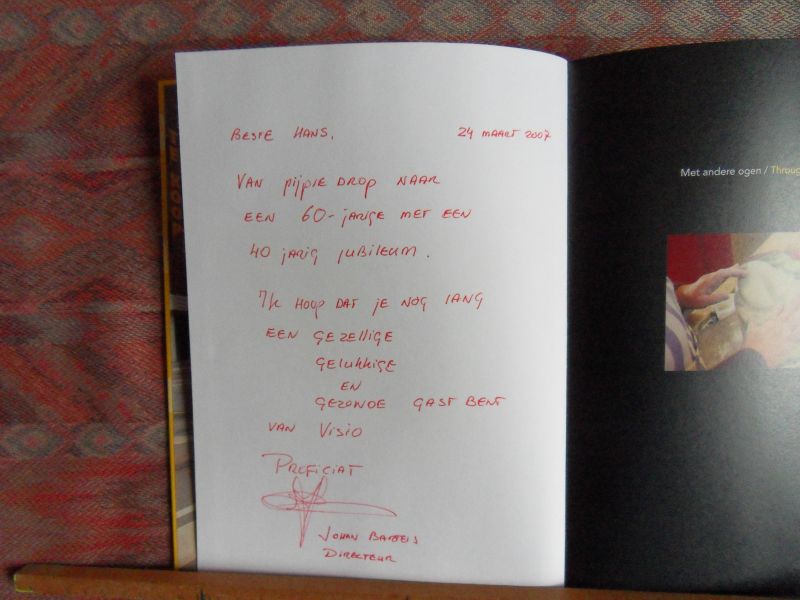 BESTE HANS, 24 MAART 2007
VAN PIJPJE DROP NAAR
EEN 60-JARIGE MET EEN
40 JARIG JUBILEUM.
IK HOOP DAT JE NOG LANG
EEN GEZELLIGE
GELUKKIGE
EN
GEZONDE GAST BENT
VAN VISIO
PROFICIAT
JOHAN
DIRECTEUR
Met andere ogen / Throug